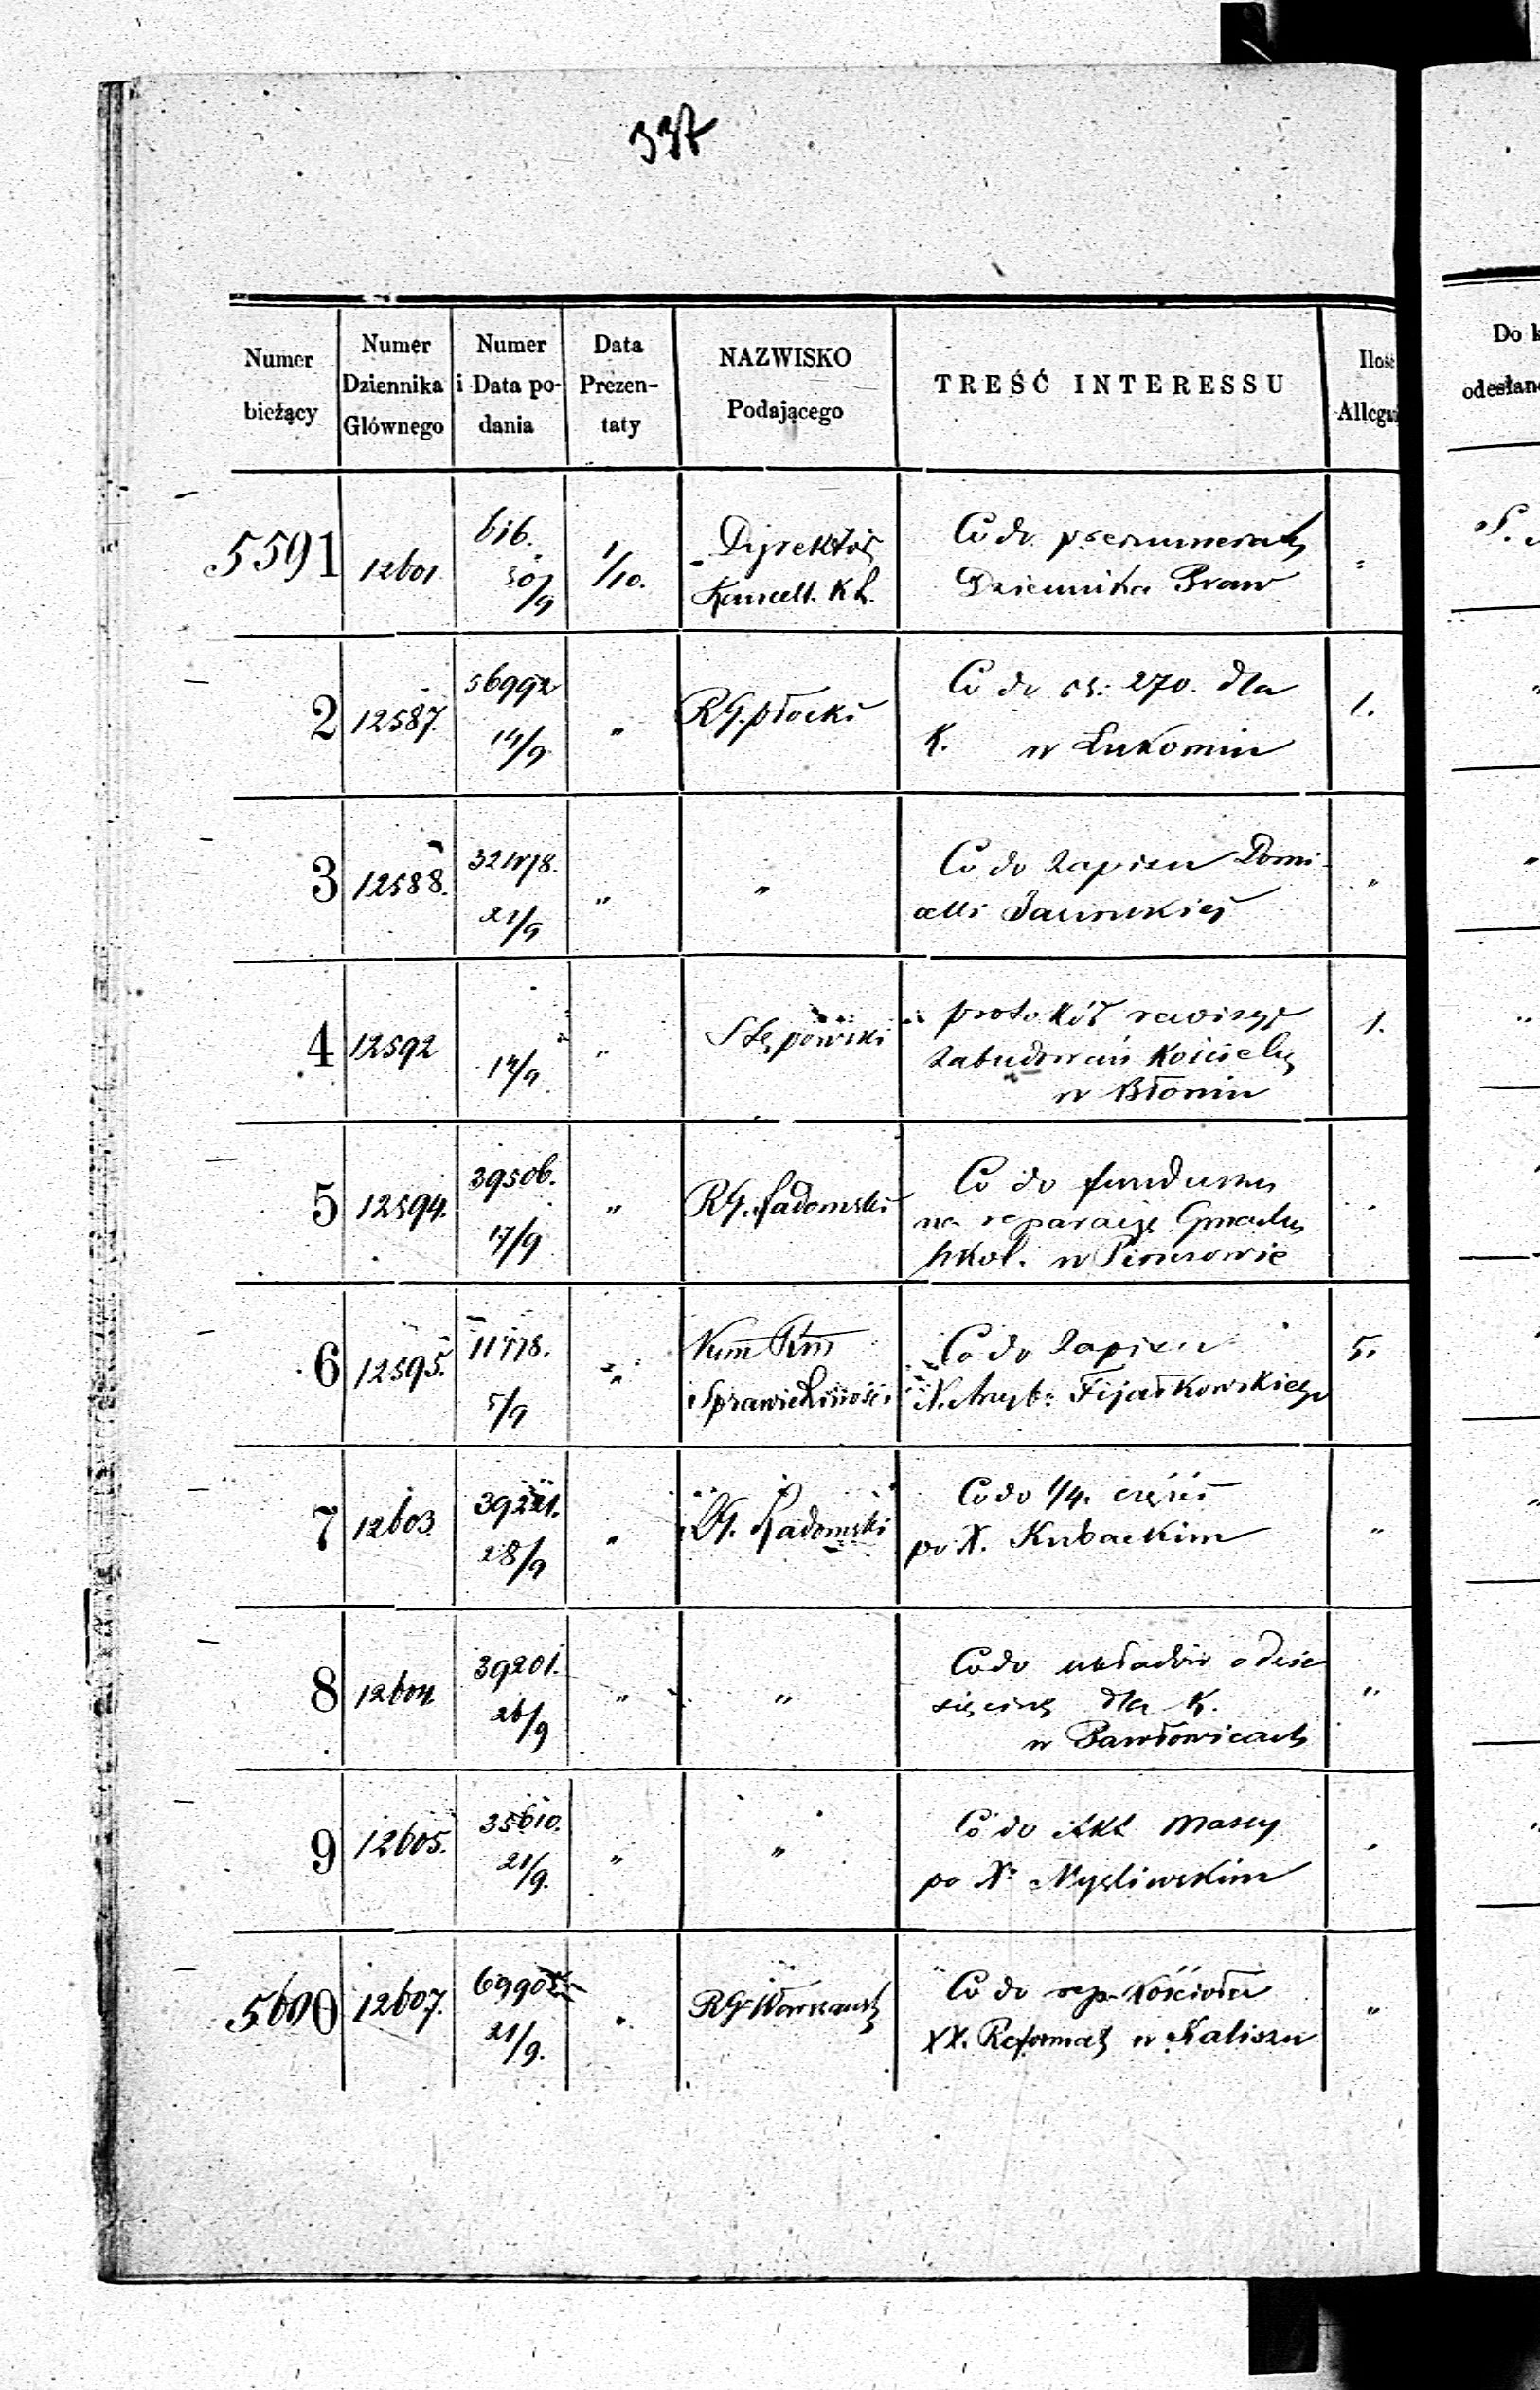 337
Numer bieżący | Numer Dziennika Głównego | Numer i Data podania | Data Prezentaty | NAZWISKO Podającego | TREŚĆ INTERESSU | Ilość Allega | Do k odesłan
5591 | 12601 | 616. 30/9 | 1/10. | Dyrektor | Co do prenumeraty
Kancell. K L. | Dziennika Praw
2 | 12587. | 56992 14/9 | " | RG. płocki | Co do rs: 270. dla | 1.
K. w Łukomiu
3 | 12588. | 21/9 | " | " | Co do zapisu Domi- | "
celli
4 | 12592 | 14/9 | " | Stępowski | protokół rewizyi | 1.
zabudowań Kościelny
w Błoniu
5 | 12594. | 39506. 17/9 | " | RG. Radomski | Co do funduszu
na reparacyę Gmachu
szkol. w
6 | 12595. | 11778. 5/9 | " | Kom Rm | Co do zapisu | 5.
Sprawiedliwości | X. Arcyb: Fijałkowskiego
7 | 12603. | 39221. 28/9 | " | RG. Radomski | Co do 1/4. części | "
po X. Kubackim
8 | 12604. | 39201. 26/9 | " | " | Co do układów o dzie | "
sięcinę dla K.
w Pawłowicach
9 | 12605. | 35610. 21/9. | " | " | Co do Akt massy
po X. Myśliwskim
5600 | 12607. | 21/9. | " | RG Warszawsk | Co do rep. Kościoła | "
XX. Reformat w Kaliszu